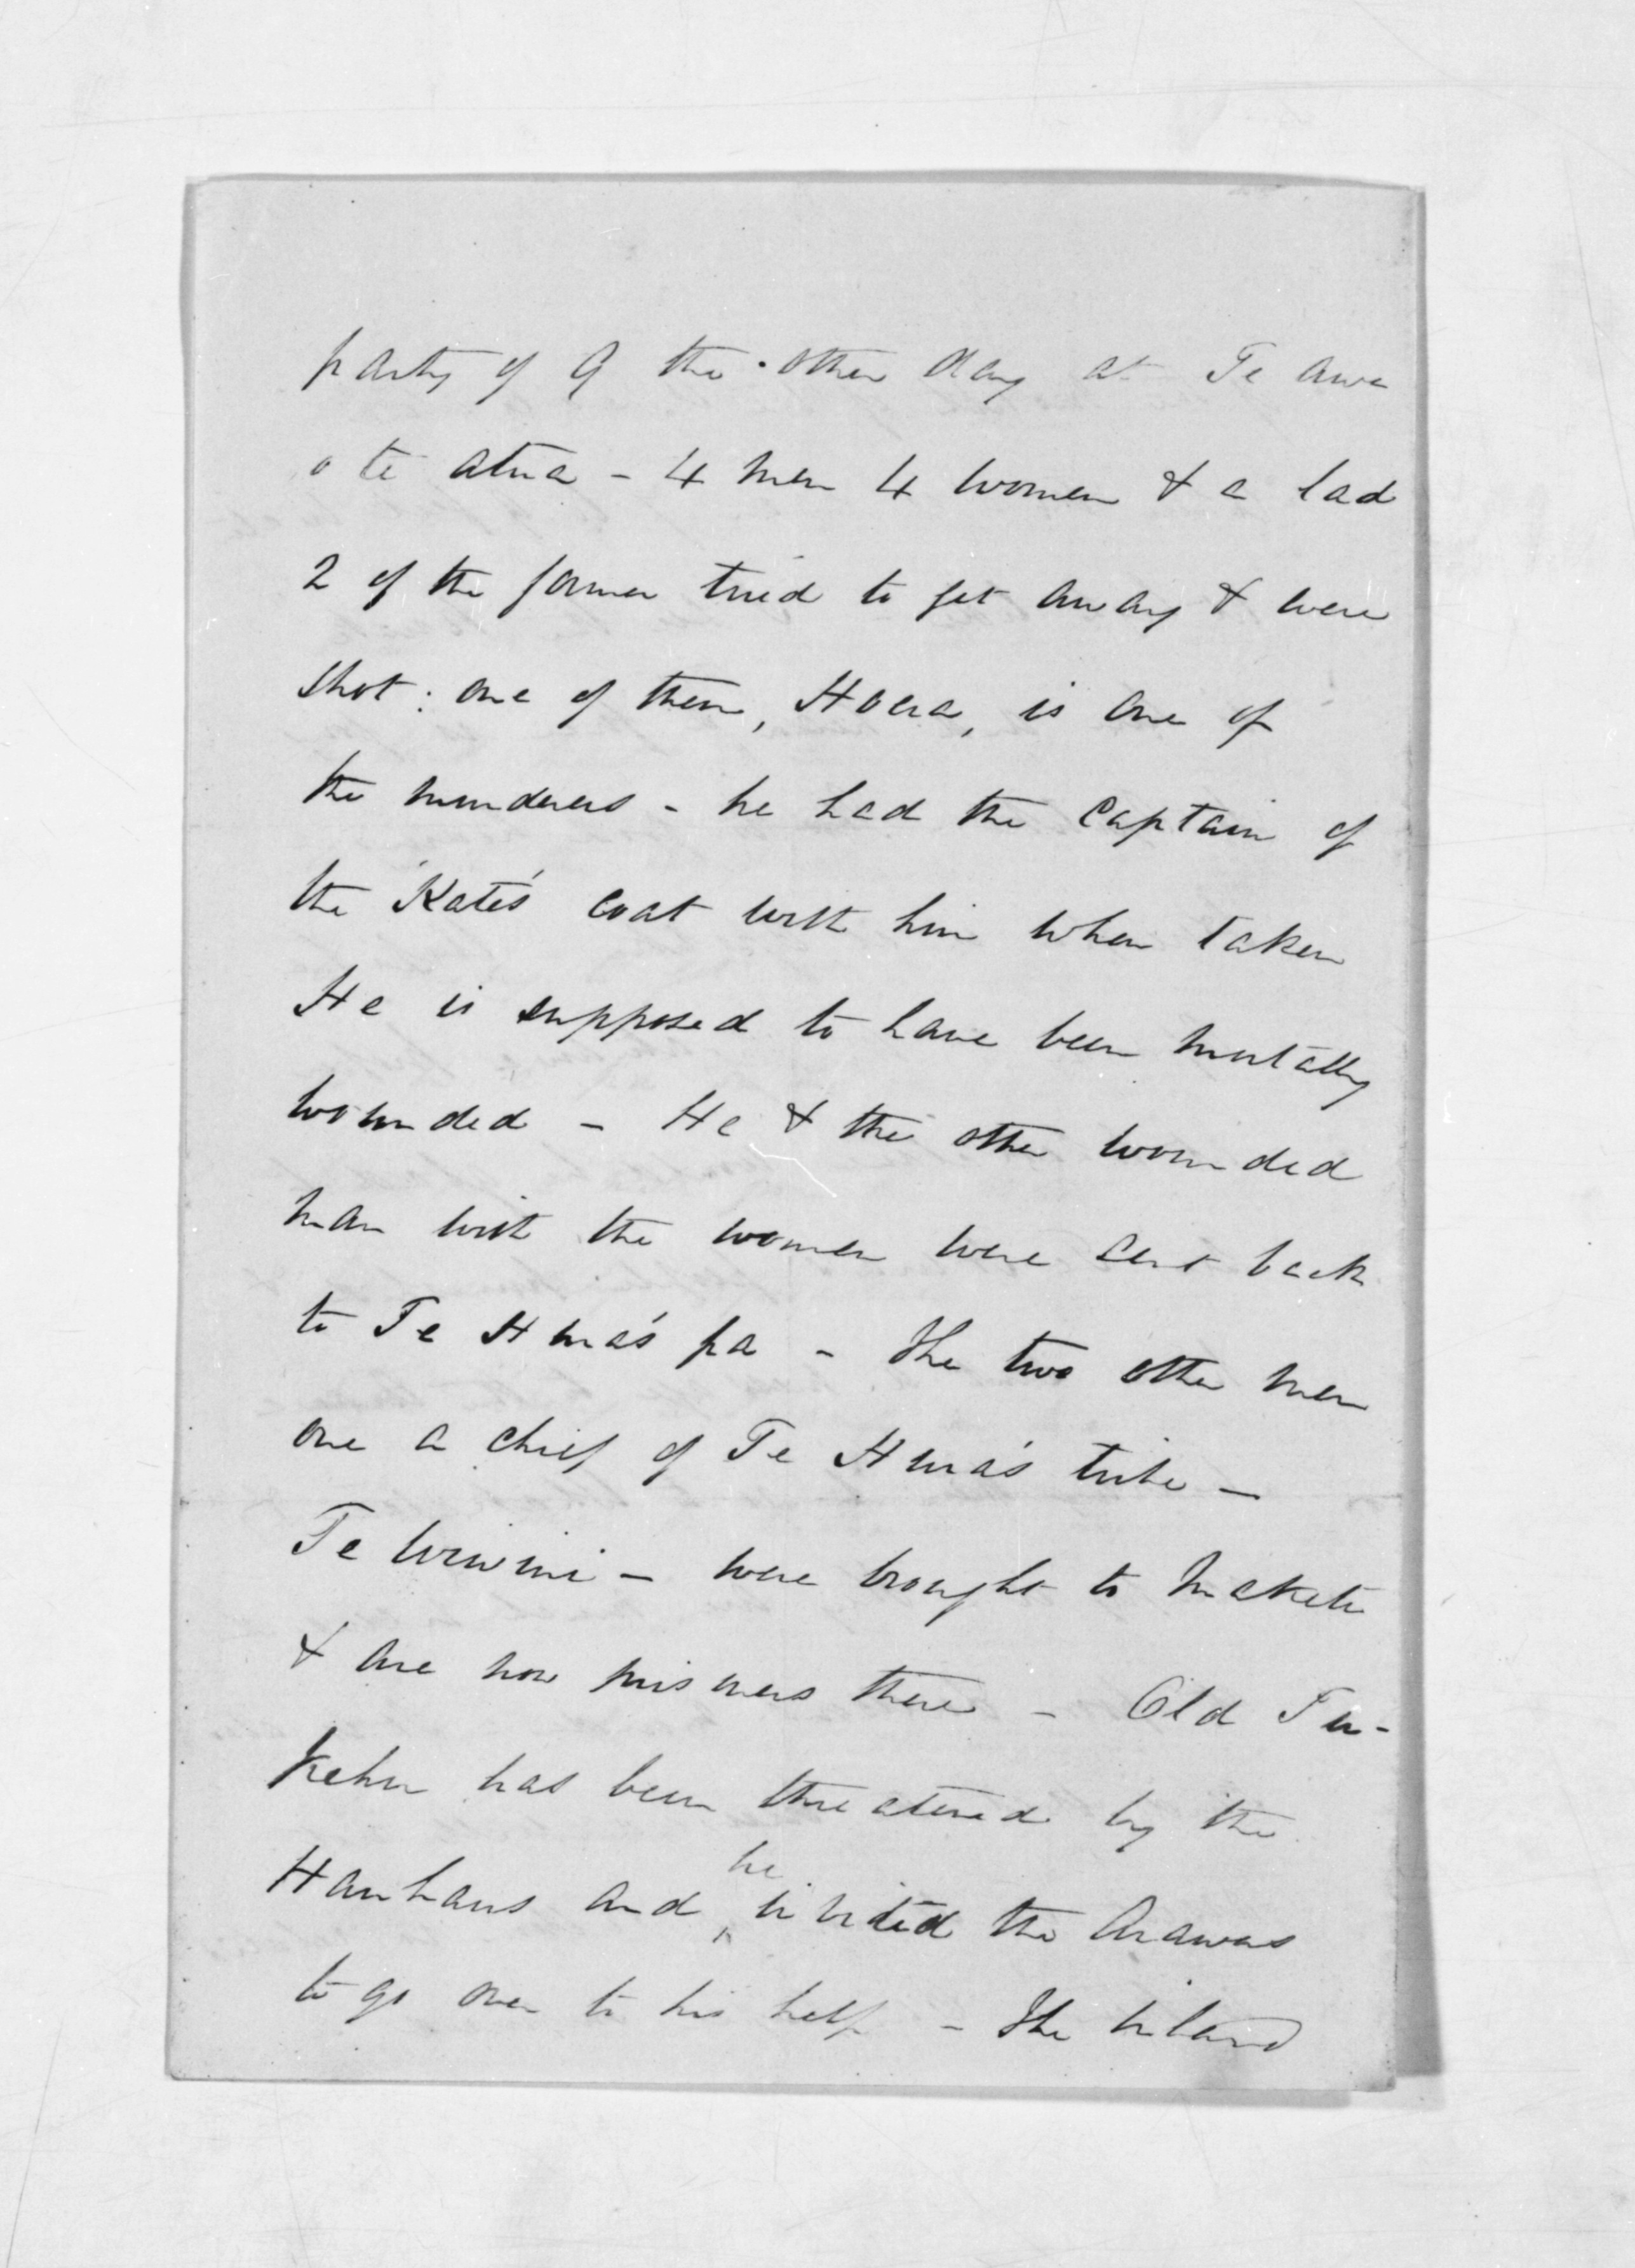 party of 9 the other day at Te Awa
o te atua - 4 men 4 women & a lad
2 of the former tried to get away & were
shot: one of them, Hoera, is one of
the murderers - he had the Captain of
the 'Kate's' coat with him when taken
He is supposed to have been mortally
wounded - He & the other wounded
man with the women were sent back
to Te Hura's pa - The two other men
one a chief of Te Hura's tribe -
Te Wiwini - were brought to Maketu
& are now prisoners there - Old Tu-
kehu has been threatened by the
Hauhaus and he invited the Arawas
to go over to his help - The inland